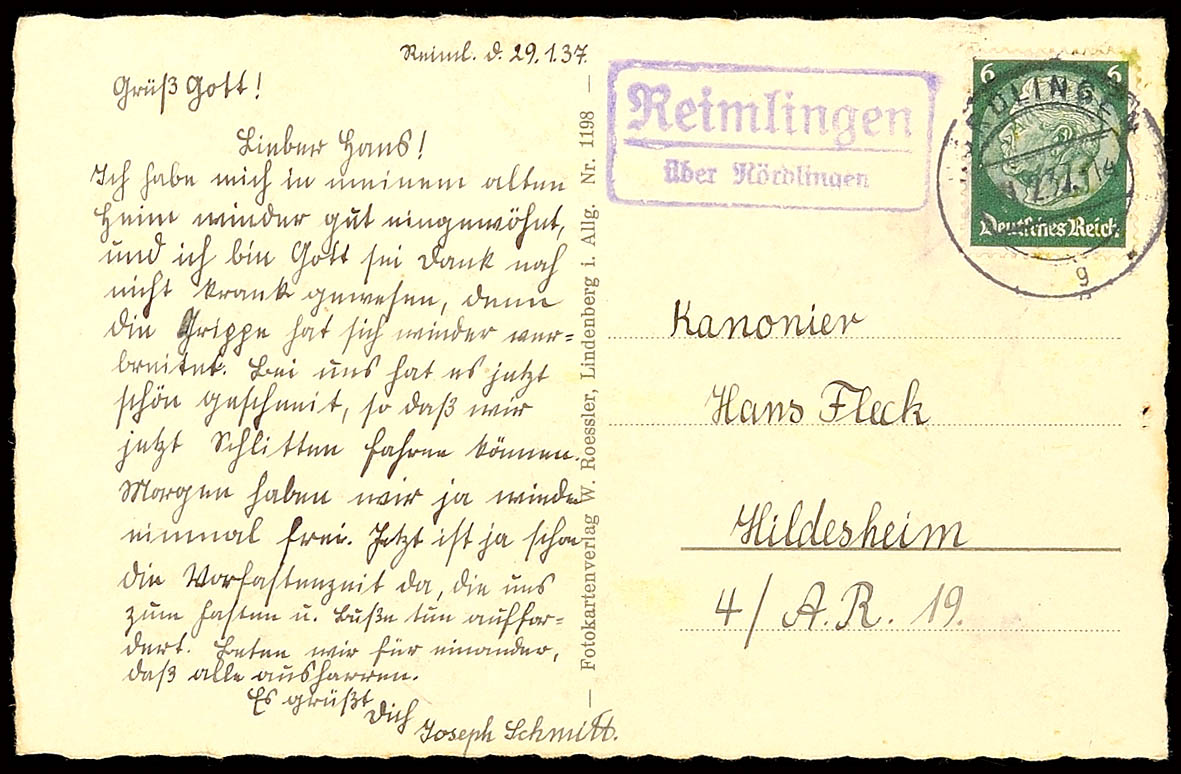 Reiml. d. 29.1.37.
Grüß Gott!
Lieber Hans!
Ich habe mich in meinem alten
Heim wieder gut eingewöhnt,
und ich bin Gott sei Dank noch
nicht krank gewesen, denn
die Grippe hat sich wieder ver=
breitet. Bei uns hat es jetzt
schön geschneit, so daß wir
jetzt Schlitten fahren können.
Morgen haben wir ja wieder
einmal frei. Jetzt ist ja schon
die Vorfastenzeit da, die uns
zum Fasten u. Buße tun auffor=
dert. Beten wir für einander,
daß alle ausharren.
Es grüßt
Dich
Joseph Schmitt.
Fotokartenverlag W. Roessler, Lindenberg i. Allg. Nr. 1198
Reimlingen
über Nördlingen
6 6
Deutsches Reich
RDLINGEN
g
Kanonier
Hans Fleck
Hildesheim
4/ A.R. 19.